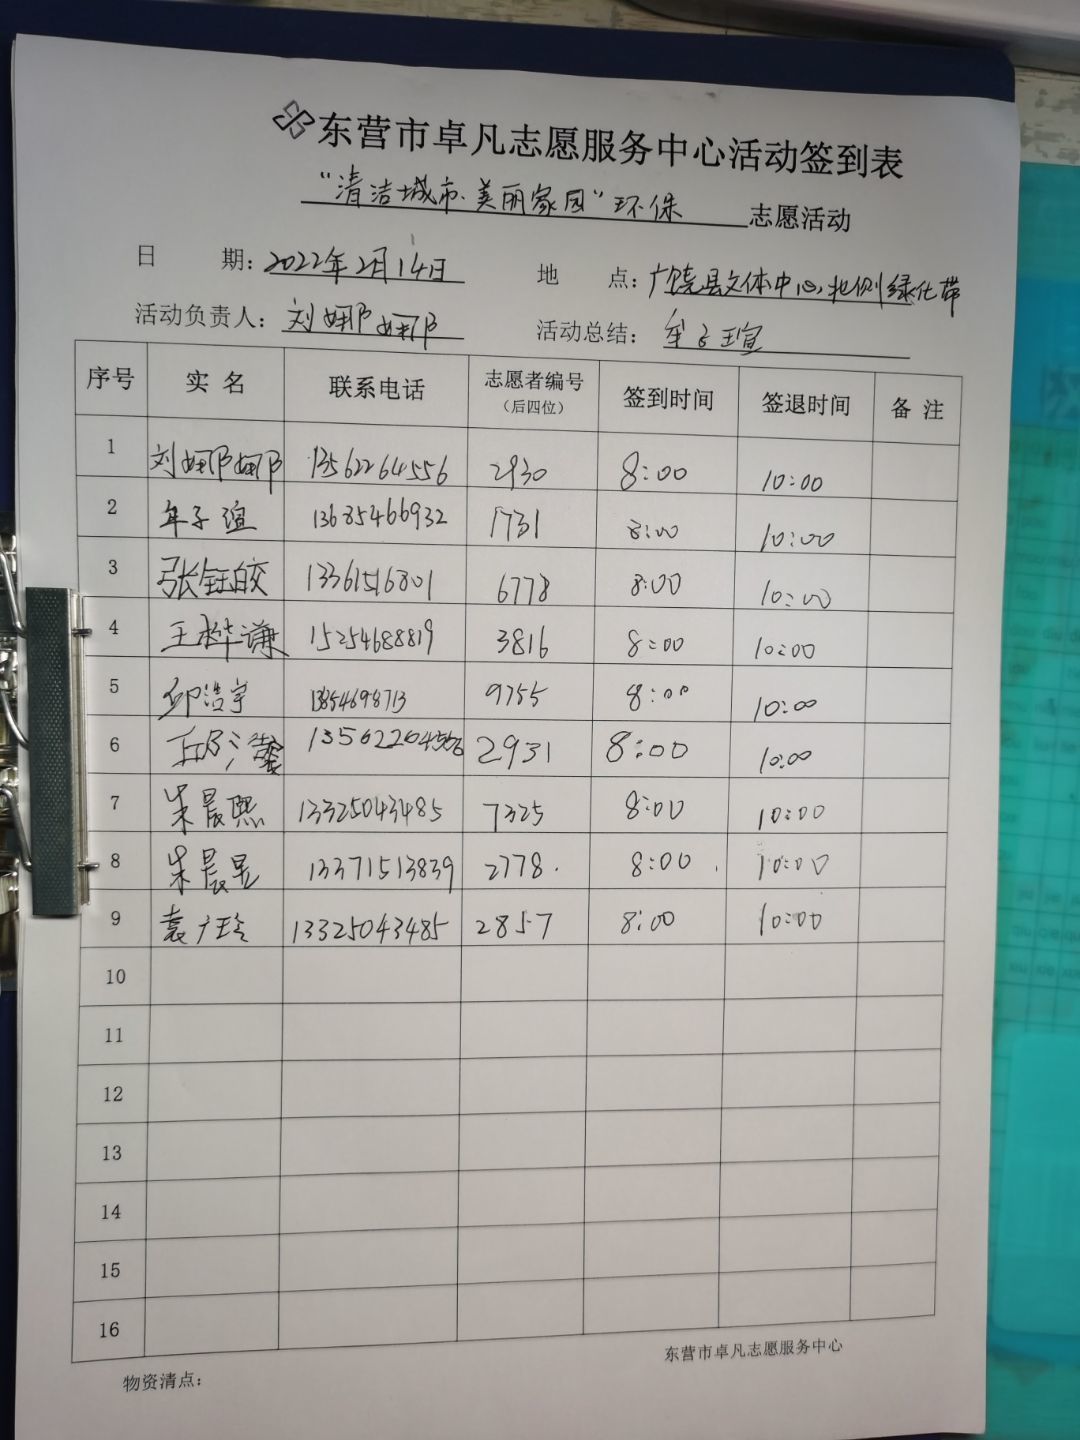 东营市卓凡志愿服务中心活动签到表
“清洁城市、美丽家园”环保 志愿活动
日 期：2022年2月14日 地 点：广饶县文体中心北侧绿化带
活动负责人：刘娜娜 活动总结：牟子瑄
序号 实 名 联系电话 志愿者编号（后四位） 签到时间 签退时间 备 注
1 刘娜娜 13562264556 2930 8:00 10:00
2 牟子瑄 13685466932 1731 8:00 10:00
3 张钰皎 13361516801 6778 8:00 10:00
4 王桦谦 15254688819 3816 8:00 10:00
5 邱浩宇 13854698713 9755 8:00 10:00
6 2931 8:00 10:00
7 朱晨熙 13325043485 7325 8:00 10:00
8 朱晨昱 13371513839 2778 8:00 10:00
9 袁广玲 13325043485 2857 8:00 10:00
10
11
12
13
14
15
16
东营市卓凡志愿服务中心
物资清点：